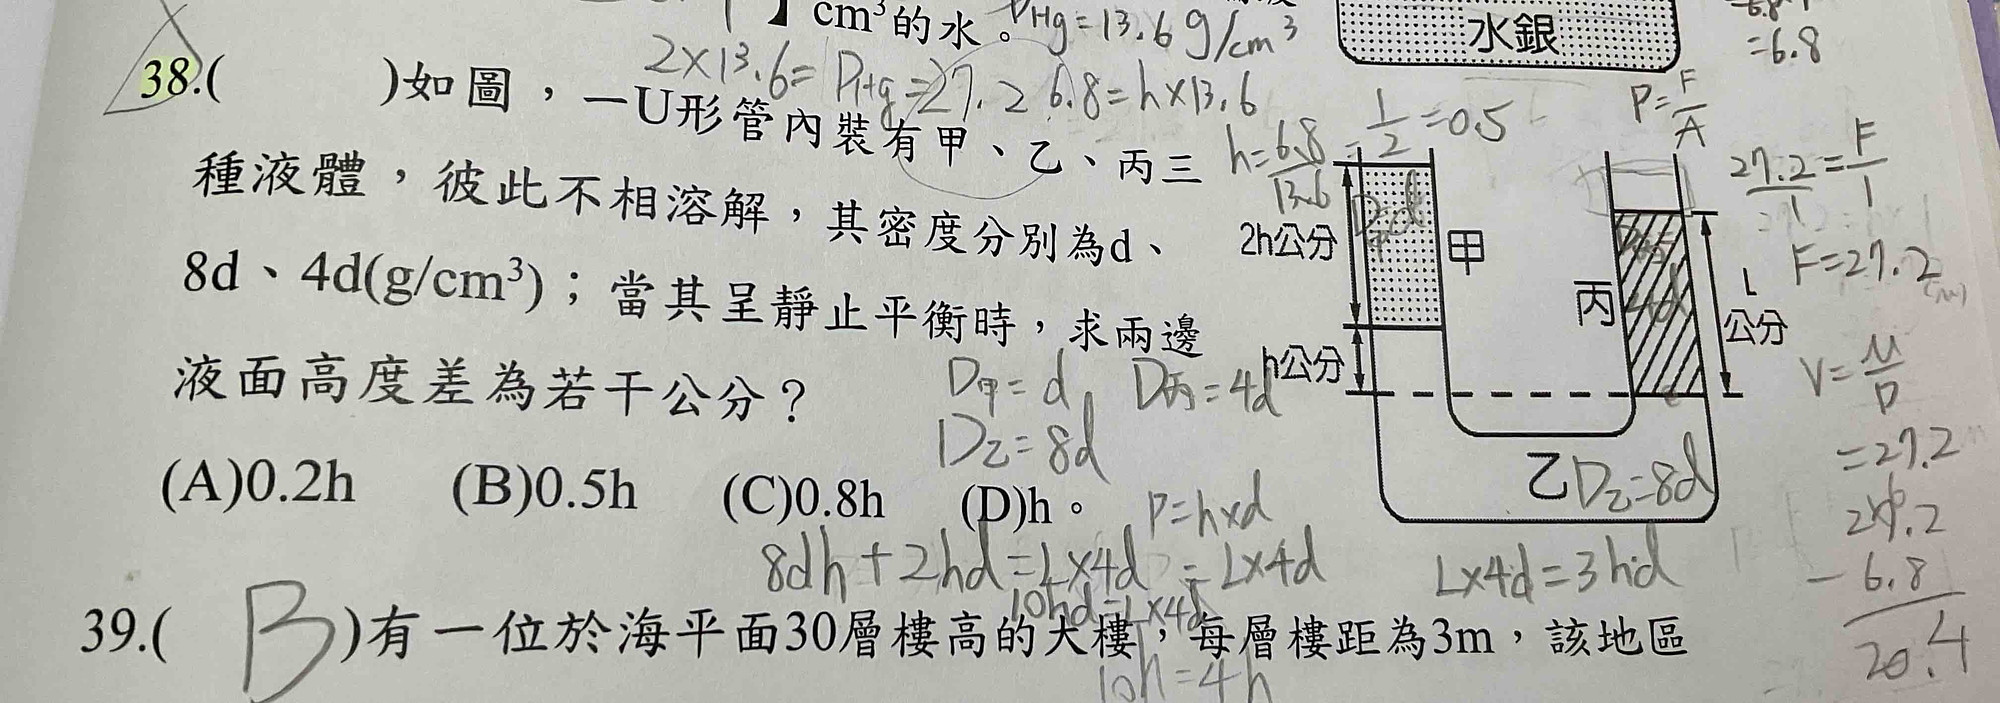 】cm³的水。
D Hg=13.6g/cm³
水銀
=6.8
2×13.6= P Hg=27.2
6.8=h×13.6
h=6.8/13.6=1/2=0.5
P=F/A
27.2/1=F/1
F=27.2
38.( )如圖，一U形管內裝有甲、乙、丙三
種液體，彼此不相溶解，其密度分別為d、
8d、4d(g/cm³)；當其呈靜止平衡時，求兩邊
液面高度差為若干公分？
(A)0.2h (B)0.5h (C)0.8h (D)h。
2h公分
甲
丙
L
公分
h公分
乙 D乙=8d
D甲=d D丙=4d
D乙=8d
P=h×d
V=M/D
=27.2
- 6.8
20.4
8dh+2hd=L×4d =L×4d
L×4d=3hd
10hd=L×4d
10h=4h
39.( B )有一位於海平面30層樓高的大樓，每層樓距為3m，該地區